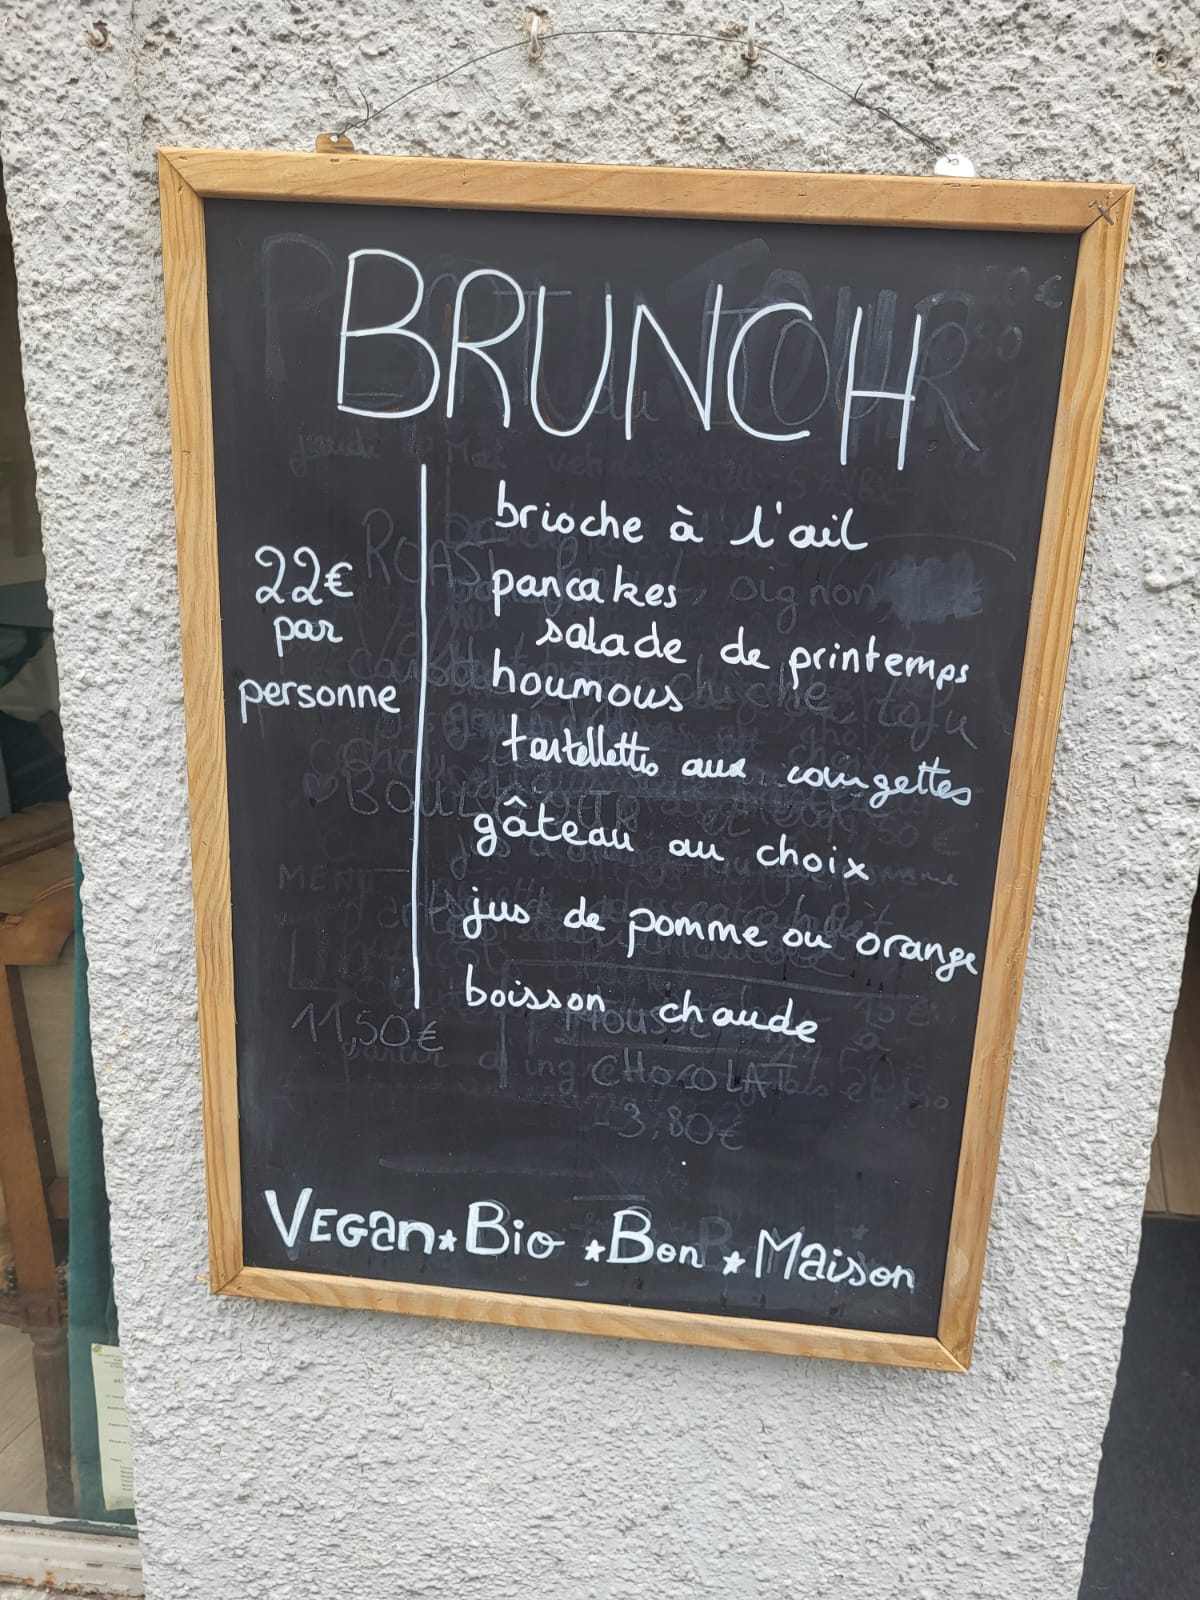 BRUNCH
22€
par
personne
brioche à l'ail
pancakes
salade de printemps
houmous
tartelettes aux courgettes
gâteau au choix
jus de pomme ou orange
boisson chaude
11,50€
MOUSSE
CHOCOLAT
3,80€
VEGan★Bio ★Bon ★Maison